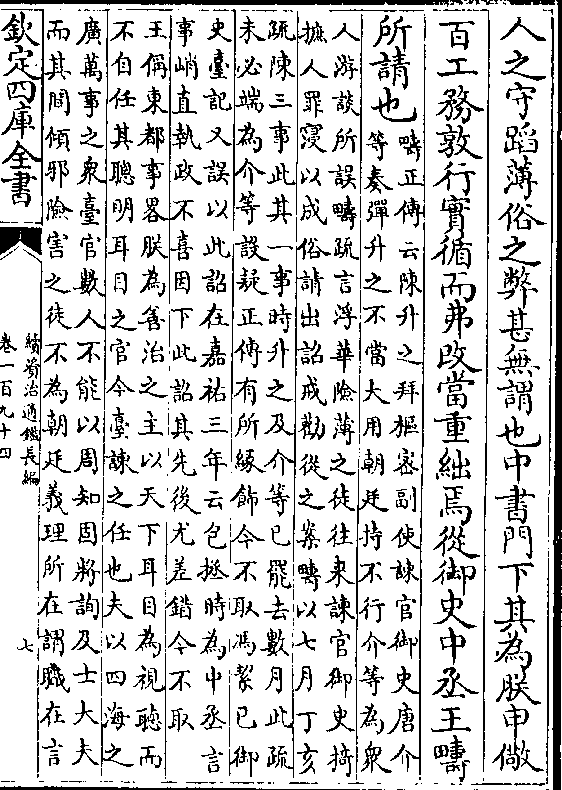 人之守蹈薄俗之弊甚無謂也中書門下其為朕申儆
百工務敦行實循而弗改當重絀焉從御史中丞王疇
所請也
疇正傳云陳升之拜樞密副使諫官御史唐介
等奏彈升之不當大用朝廷持不行介等為衆
人游談所誤疇疏言浮華險薄之徒往來諫官御史掎
摭人罪寖以成俗請出詔戒勸從之案疇以七月丁亥
疏陳三事此其一事時升之及介等已罷去數月此疏
未必端為介等設疑正傳有所緣飾今不取馮絜已御
史臺記又誤以此詔在嘉祐三年云包拯時為中丞言
事峭直執政不喜因下此詔其先後尤差錯今不取
王偁東都事畧朕為善治之主以天下耳目為視聽而
不自任其聰明耳目之官今臺諫之任也夫以四海之
廣萬事之衆臺官數人不能以周知固將詢及士大夫
而其間傾邪險害之徒不為朝廷義理所在謂職在言
欽定四庫全書
續資治通鑑長編
卷一百九十四
七